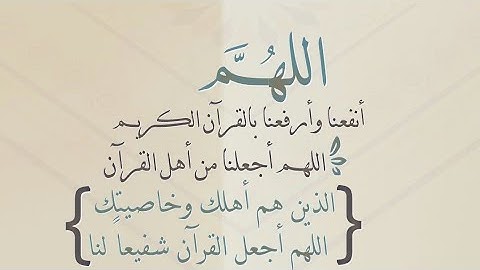 اللهُمَّ
أنفعنا وأرفعنا بالقرآن الكريم
اللهم أجعلنا من أهل القرآن
{الذين هم أهلك وخاصيتٍك
اللهم أجعل القرآن شفيعاً لنا}